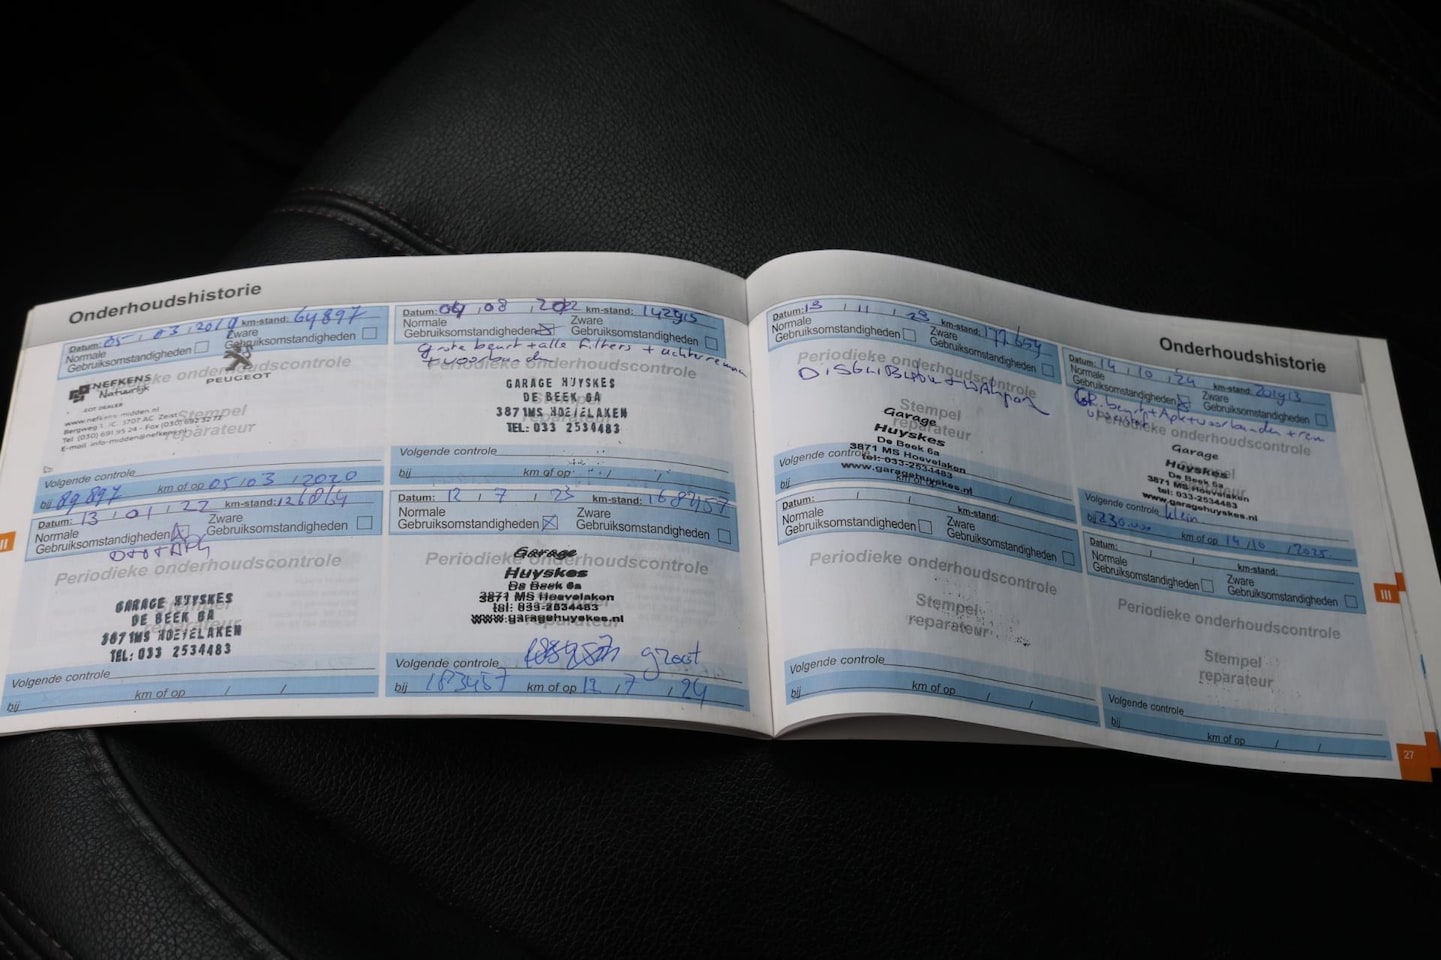 Onderhoudshistorie
Datum: 05 / 03 / 2019 km-stand: 64897
Normale Gebruiksomstandigheden
Zware Gebruiksomstandigheden
Periodieke onderhoudscontrole
NEFKENS
Natuurlijk
PEUGEOT
www.nefkens-midden.nl
Stempel
reparateur
Volgende controle
bij 89897 km of op 05 / 03 / 2020
Datum: 04 / 08 / 2022 km-stand: 142915
Normale Gebruiksomstandigheden
Zware Gebruiksomstandigheden
Grote beurt + alle filters + achterremmen
+ voorbanden
Periodieke onderhoudscontrole
GARAGE HUYSKES
DE BEEK 6A
3871MS HOEVELAKEN
TEL: 033 2534483
Volgende controle
bij km of op / /
Datum: 13 / 01 / 22 km-stand:
Normale Gebruiksomstandigheden
Zware Gebruiksomstandigheden
Periodieke onderhoudscontrole
GARAGE HUYSKES
DE BEEK 6A
3871MS HOEVELAKEN
TEL: 033 2534483
Volgende controle
bij km of op / /
Datum: 12 / 7 / 23 km-stand: 168457
Normale Gebruiksomstandigheden
Zware Gebruiksomstandigheden
Periodieke onderhoudscontrole
Garage
Huyskes
De Beek 6a
3871 MS Hoevelaken
tel: 033-2534483
www.garagehuyskes.nl
Volgende controle groot
bij 183457 km of op 12 / 7 / 24
Onderhoudshistorie
Datum: 13 / 11 / 23 km-stand: 177654
Normale Gebruiksomstandigheden
Zware Gebruiksomstandigheden
Periodieke onderhoudscontrole
Stempel
reparateur
Garage
Huyskes
De Beek 6a
3871 MS Hoevelaken
tel: 033-2534483
www.garagehuyskes.nl
Volgende controle
bij km of op
Datum: 14 / 10 / 24 km-stand: 201913
Normale Gebruiksomstandigheden
Zware Gebruiksomstandigheden
Gr. beurt + Apk + voorbanden +
Periodieke onderhoudscontrole
Garage
Huyskes
De Beek 6a
3871 MS Hoevelaken
tel: 033-2534483
www.garagehuyskes.nl
Volgende controle klein
bij 230.000 km of op 14 / 10 / 2025
Datum: / / km-stand:
Normale Gebruiksomstandigheden
Zware Gebruiksomstandigheden
Periodieke onderhoudscontrole
Stempel
reparateur
Volgende controle
bij km of op / /
Datum: / / km-stand:
Normale Gebruiksomstandigheden
Zware Gebruiksomstandigheden
Periodieke onderhoudscontrole
Stempel
reparateur
Volgende controle
bij km of op / /
II
III
27